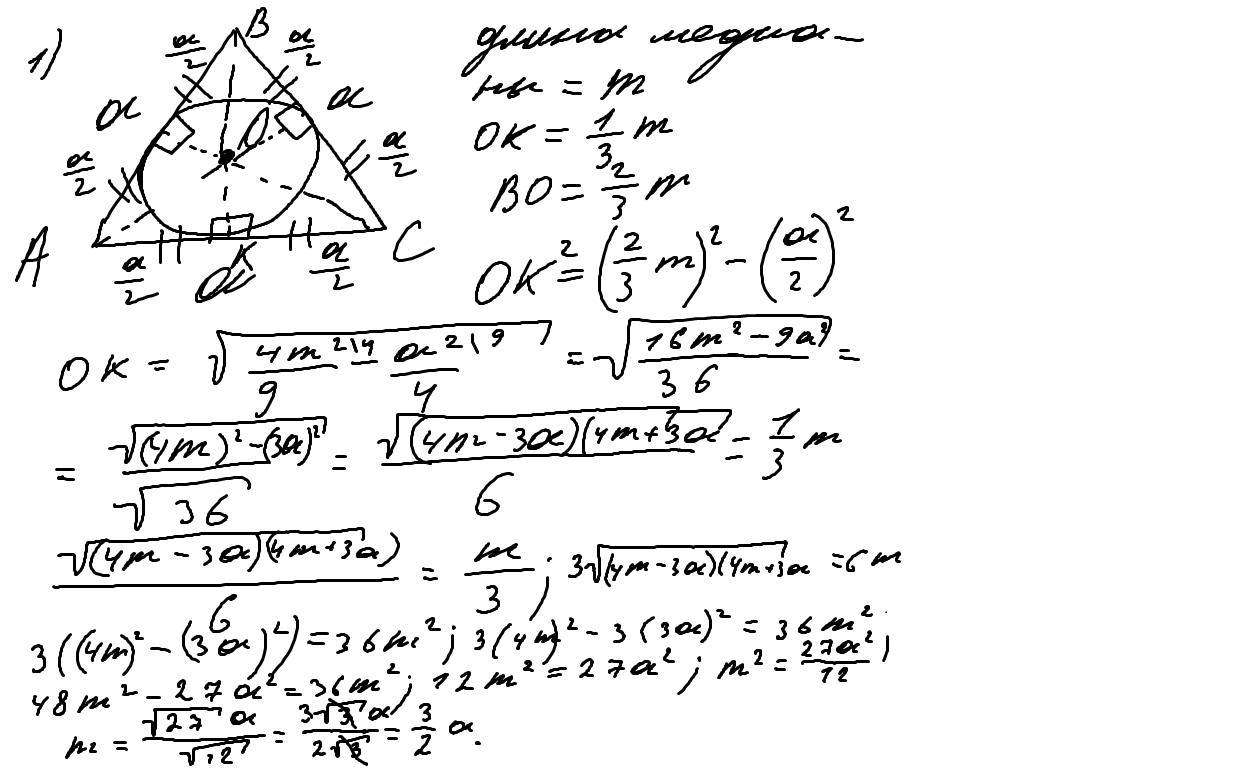 1)
B
a/2 a/2
a a
O
a/2 a/2
A K C
a/2 a a/2
длина медиа-
ны = m
OK = 1/3 m
BO = 2/3 m
OK² = (2/3 m)² - (a/2)²
OK = √(4m²\4/9 - a²\9/4) = √((16m² - 9a²)/36) =
= √((4m)² - (3a)²)/√36 = √((4m - 3a)(4m + 3a))/6 = 1/3 m
√((4m - 3a)(4m + 3a))/6 = m/3 ; 3√((4m - 3a)(4m + 3a)) = 6m
3((4m)² - (3a)²) = 36m² ; 3(4m)² - 3(3a)² = 36m²
48m² - 27a² = 36m² ; 12m² = 27a² ; m² = 27a²/12 ;
m = √27 a/√12 = 3√3 a/2√3 = 3/2 a.